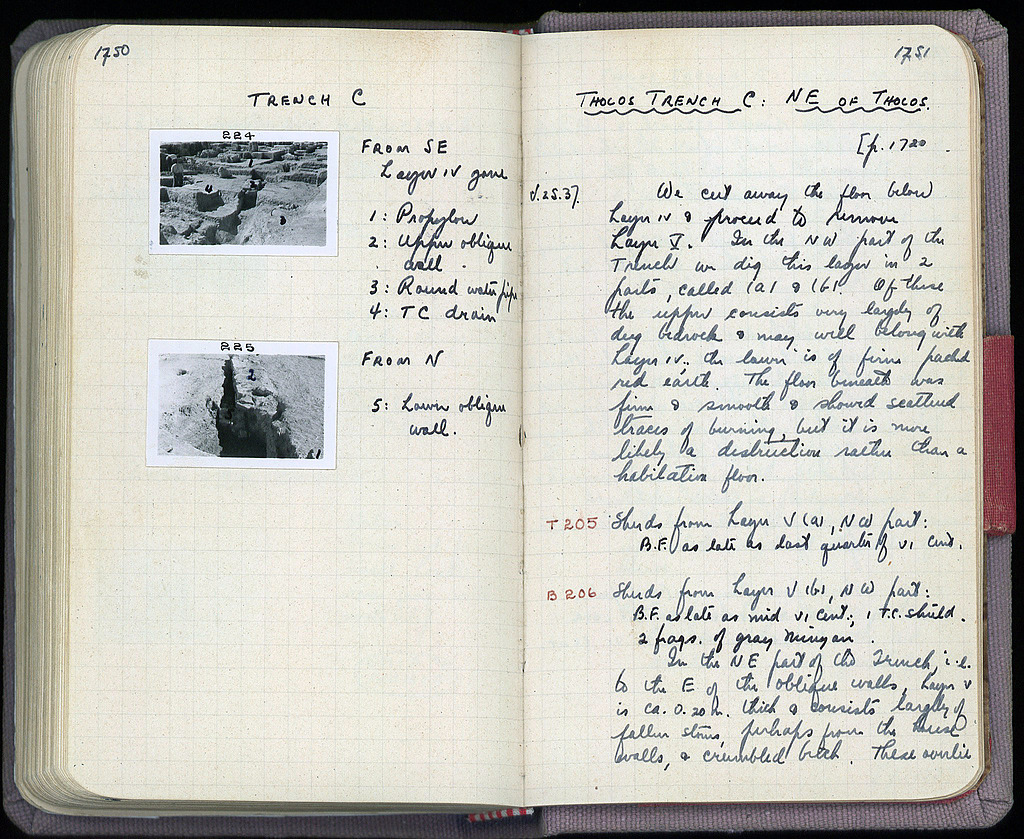 1750
TRENCH C
224
FROM SE
Layer IV gone
1: Propylon
2: Upper oblique
wall.
3: Round water pipe
4: TC drain
225
FROM N
5: Lower oblique
wall.
1751
THOLOS TRENCH C: NE OF THOLOS.
[p. 1720
V.25.37.
We cut away the floor below
Layer IV & proceed to remove
Layer V. In the NW part of the
Trench we dig this layer in 2
parts, called (a) & (b). Of these
the upper consists very largely of
dug bedrock & may well belong with
Layer IV. the lower is of firm packed
red earth. The floor beneath was
firm & smooth & showed scattered
traces of burning, but it is more
likely a destruction rather than a
habitation floor.
T 205
Sherds from Layer V (a), NW part:
B.F. as late as last quarter of VI cent.
B 206
Sherds from Layer V (b), NW part:
B.F. as late as mid VI cent.; 1 T.C. shield.
2 frags. of gray Minyan.
In the NE part of the Trench, i.e.
to the E of the oblique walls, Layer V
is ca. 0.20 m. thick & consists largely of
fallen stones, perhaps from the house
walls, & crumbled brick. These overlie